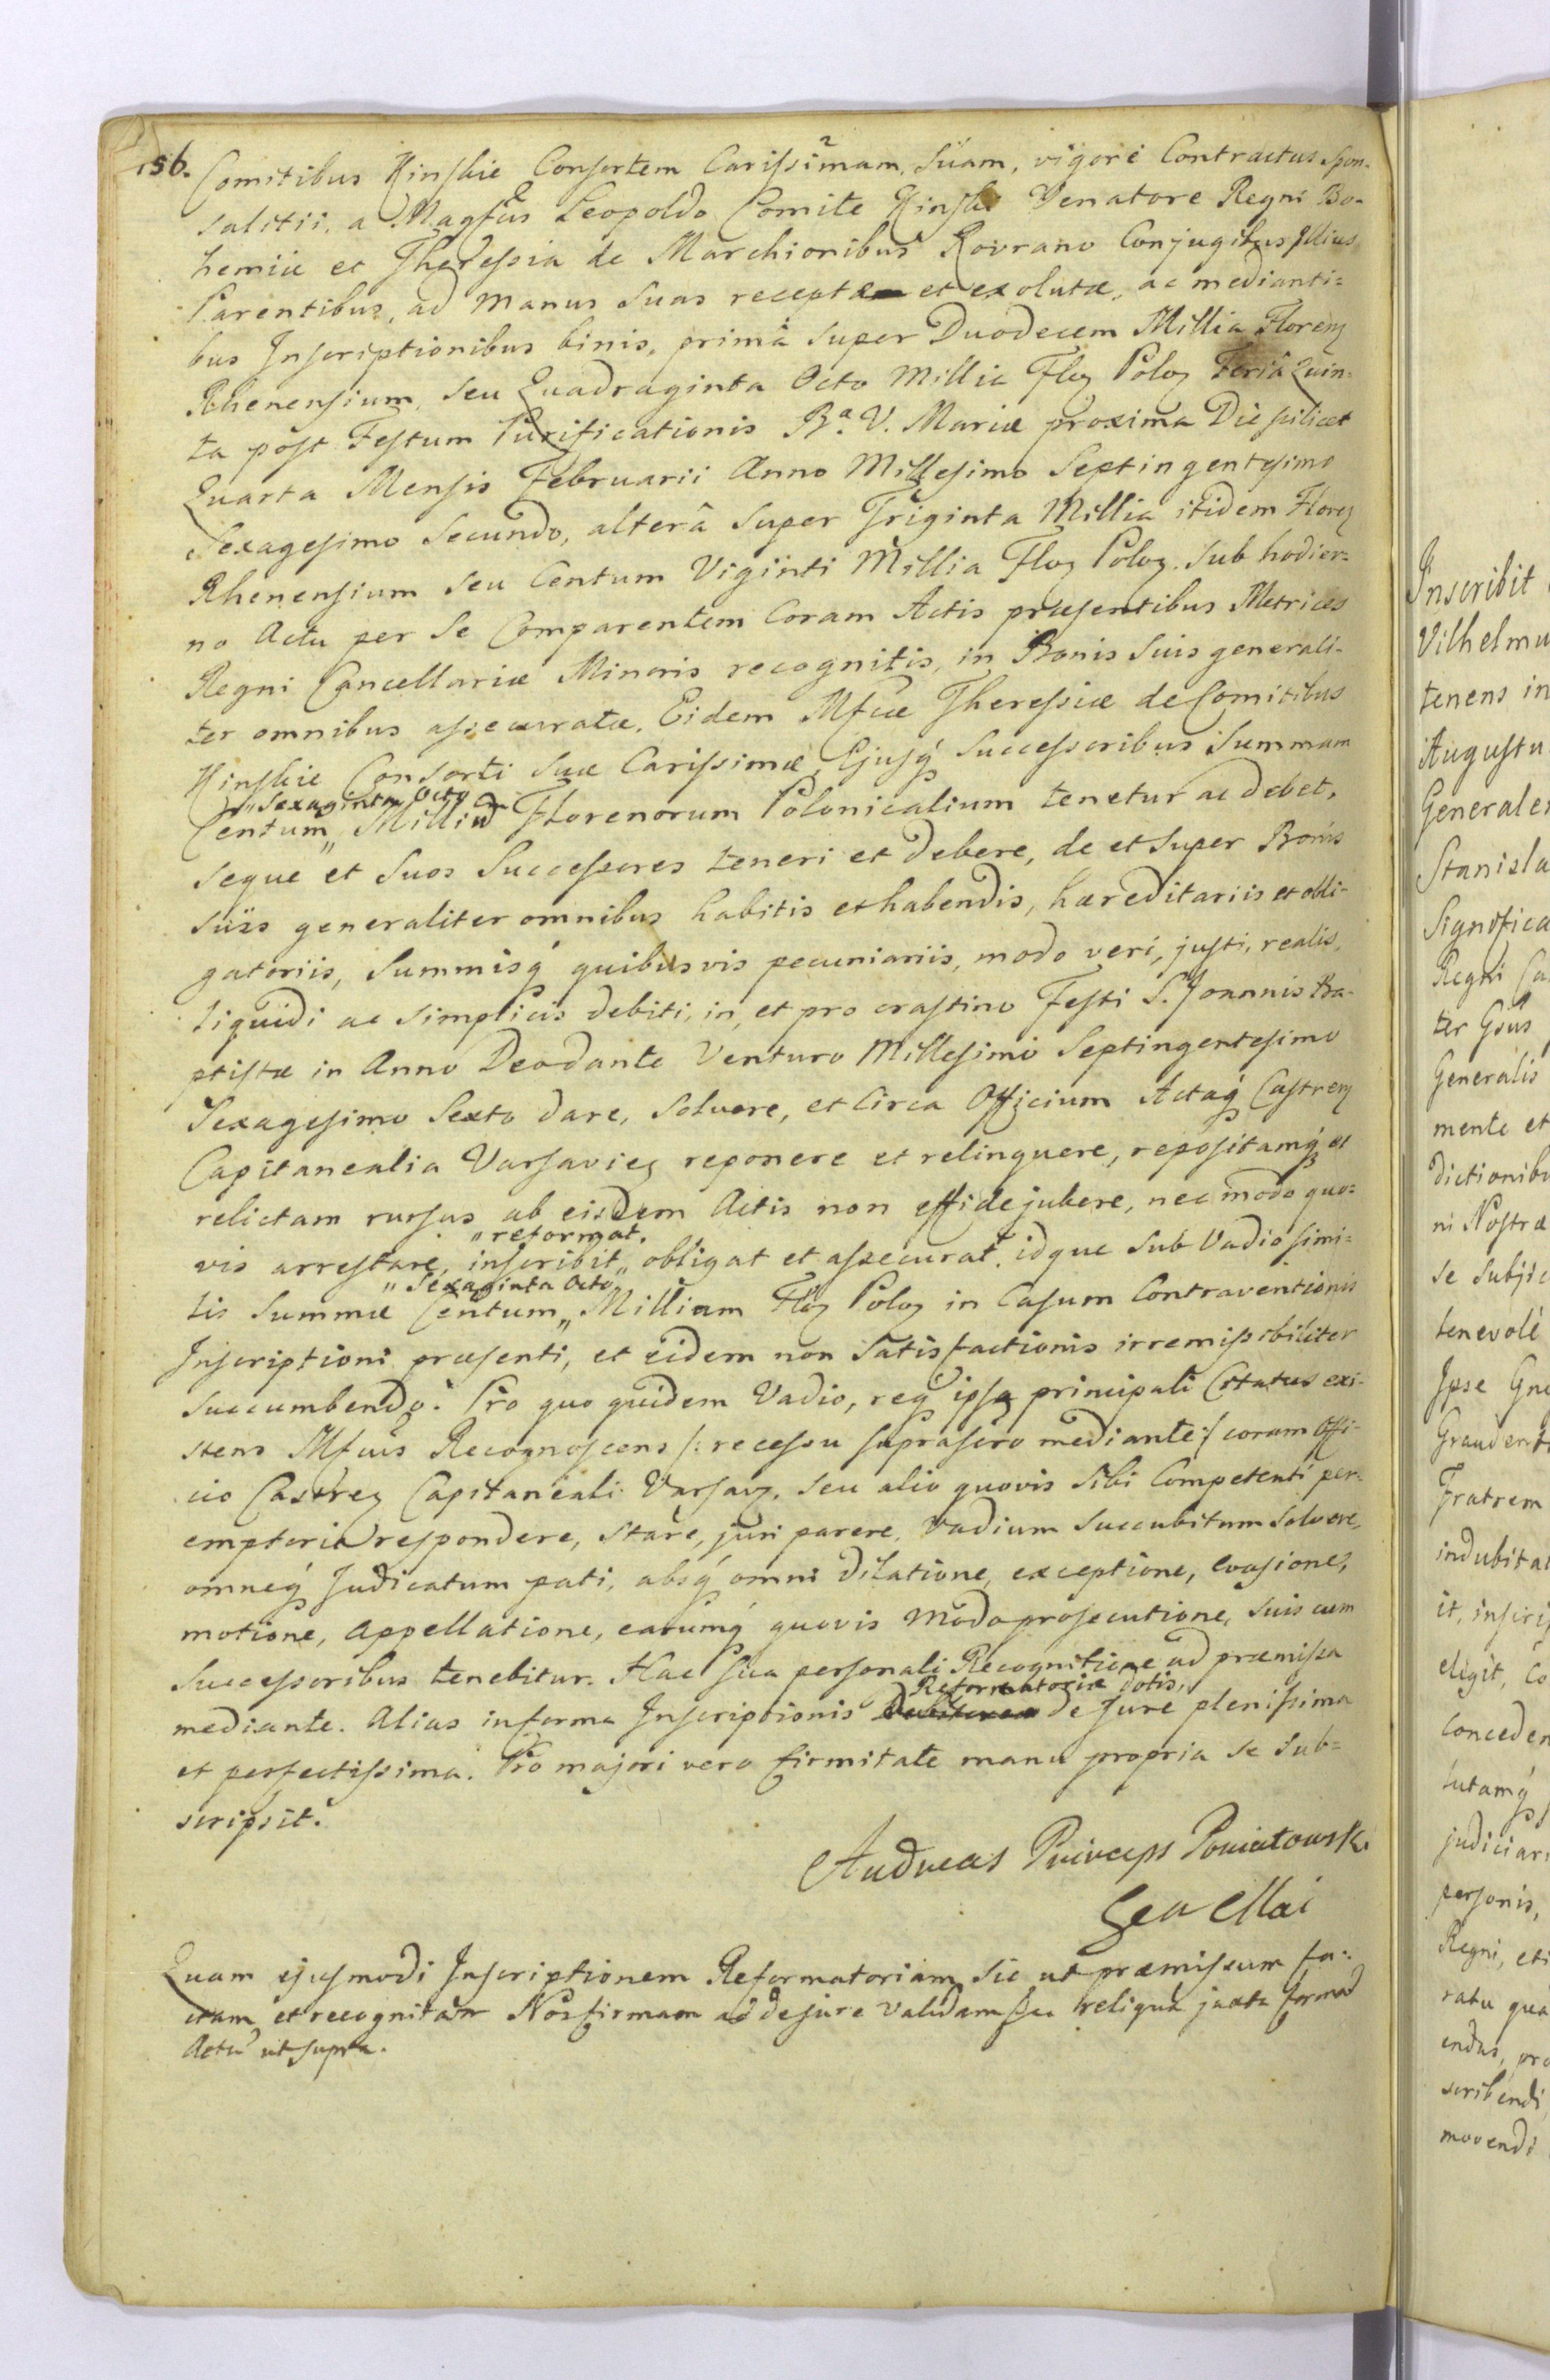 156.
Comitibus Kinskie Consortem Carissimam Suam, vigore Contractus Spon-
salitii, a Magfcis Leopoldo Comite Kinski Venatore Regni Bo-
hemiæ et Theressia de Marchionibus Rovrano Conjugibus Illius
Parentibus, ad manus suas receptæ et exolutæ, ac medianti-
bus Inscriptionibus binis, primâ super Duodecem Millia Floren
Rhenensium, seu Quadraginta Octo Millia Flor Polo Feriâ Quin-
ta post Festum Purificationis B.a V. Mariæ proxima Die scilicet
Quarta Mensis Februarii Anno Millesimo Septingentesimo
Sexagesimo Secundo, alterâ super Triginta Millia itidem Floren
Rhenensium seu Centum Viginti Millia Flor Polo. sub hodier-
no Actu per se Comparentem Coram Actis præsentibus Metrices
Regni Cancellariæ Minoris recognitis, in Bonis suis generali-
ter omnibus assecuratæ. Eidem Mfcæ Theressiæ de Comitibus
Kinskie Consorti suæ Carissimæ, Ejusq successoribus Summam
„Sexaginta Octo
Centum„ Millia Florenorum Polonicalium tenetur ac debet,
seque et suos Successores teneri et debere, de et super Bonis
suis generaliter omnibus habitis et habendis, hæreditariis et obli-
gatoriis, Summisq quibusvis pecuniariis, modo veri, justi, realis,
liquidi ac simplicis debiti, in, et pro crastino Festi S. Joannis Ba-
ptistæ in Anno Deo dante Venturo Millesimo Septingentesimo
Sexagesimo Sexto dare, solvere, et Circa Officium Actaq Castren
Capitanealia Varsavien reponere et relinquere, repositamq et
relictam rursus ab eisdem Actis non effidejubere, nec modo quo-
„reformat.
vis arrestare, inscribit„ obligat et assecurat. idque sub Vadio simi-
„Sexaginta Octo
lis Summæ Centum„ Millium Flor Polo in Casum Contraventionis
Inscriptioni præsenti, et eidem non Satisfactionis irremissibiliter
succumbendo. Pro quo quidem Vadio, req ipsa principali Citatus exi-
stens Mfcus Recognoscens /: recessu suprascro mediante :/ coram Offi-
cio Castren Capitaneali Varsav. seu alio quovis sibi Competenti per-
emptorie respondere, stare, juri parere, Vadium succubitum solvere,
omneq Judicatum pati, absq omni dilatione, exceptione, evasione,
motione, Appellatione, earumq quovis modo prosecutione, suis cum
Successoribus tenebitur. Hac sua personali Recognitione ad præmissa
Reformatoriæ dotis,
mediante. Alias in forma Inscriptionis de Jure plenissima
et perfectissima. Pro majori vero firmitate manu propria se sub-
scripsit.
Andreas Princeps Poniatowski
Gen Mai
Quam ejusmodi Inscriptionem Reformatoriam sic ut præmissum fa-
ctam et recognitam Nos firmam ac de jure validam &c reliqua juxta formam
Actu ut supra.
Inscribit
Vilhelmu
tenens in
Augustu
Generale
Stanisla
Significa
Regni Ca
ter Gsus
Generalis
mente et
dictionibu
ni Nostræ
se subjic
benevole
Ipse Gne
Graudent
Fratrem
indubita
it, inscrip
eligit, Co
Conceden
lutamq
judiciari
personis,
Regni, eti
ratu qua
endus, pro
scribendi
movendi